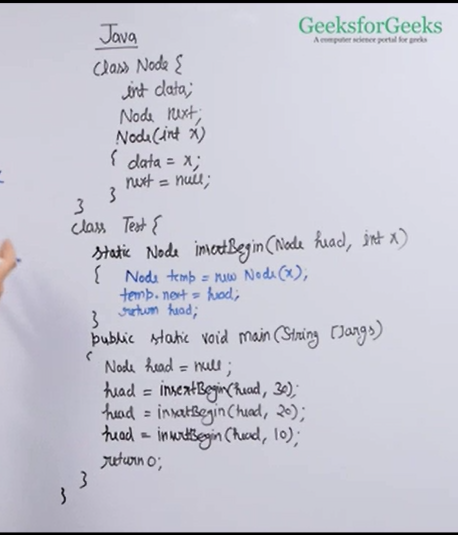 GeeksforGeeks
A computer science portal for geeks
Java
class Node {
int data;
Node next;
Node(int x)
{ data = x;
next = null;
}
}
class Test {
static Node insertBegin(Node head, int x)
{ Node temp = new Node(x);
temp.next = head;
return head;
}
public static void main(String []args)
{
Node head = null;
head = insertBegin(head, 30);
head = insertBegin(head, 20);
head = insertBegin(head, 10);
return 0;
}
}